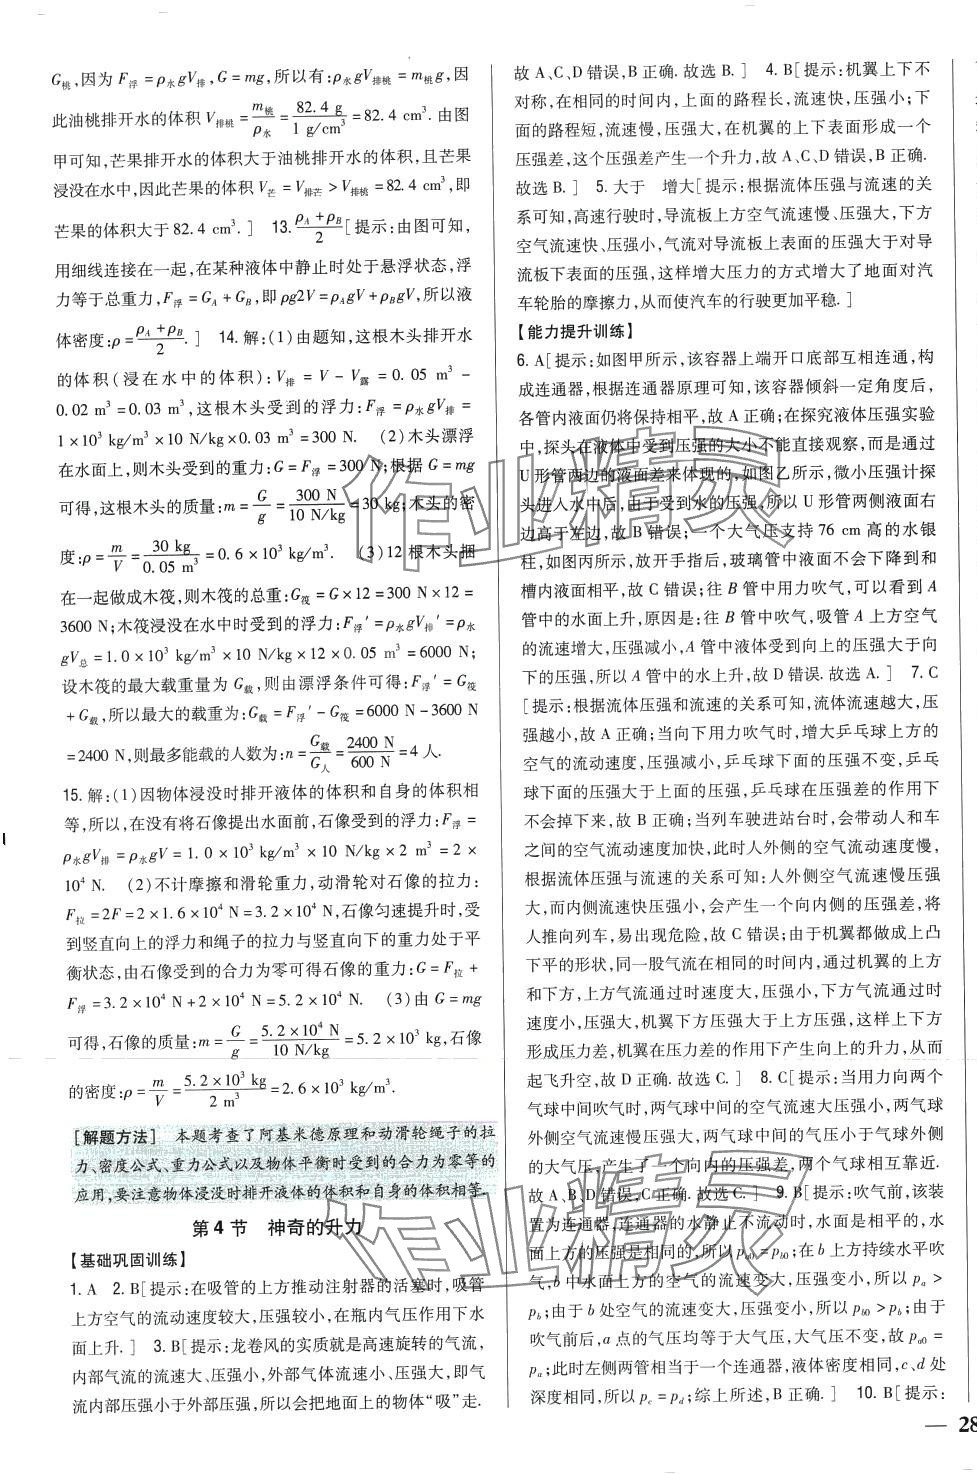 G桃,因为 F浮 = ρ水gV排,G = mg,所以有:ρ水gV排桃 = m桃g,因
此油桃排开水的体积 V排桃 = m桃/ρ水 = 82.4 g/1 g/cm³ = 82.4 cm³. 由图
甲可知,芒果排开水的体积大于油桃排开水的体积,且芒果
浸没在水中,因此芒果的体积 V芒 = V排芒 > V排桃 = 82.4 cm³,即
芒果的体积大于 82.4 cm³.] 13. (ρA + ρB)/2 [提示:由图可知,
用细线连接在一起,在某种液体中静止时处于悬浮状态,浮
力等于总重力,F浮 = GA + GB,即 ρg2V = ρAgV + ρBgV,所以液
体密度:ρ = (ρA + ρB)/2.] 14. 解:(1)由题知,这根木头排开水
的体积(浸在水中的体积):V排 = V - V露 = 0.05 m³ -
0.02 m³ = 0.03 m³,这根木头受到的浮力:F浮 = ρ水gV排 =
1×10³ kg/m³×10 N/kg×0.03 m³ = 300 N. (2)木头漂浮
在水面上,则木头受到的重力:G = F浮 = 300 N;根据 G = mg
可得,这根木头的质量:m = G/g = 300 N/10 N/kg = 30 kg;木头的密
度:ρ = m/V = 30 kg/0.05 m³ = 0.6×10³ kg/m³. (3)12 根木头捆
在一起做成木筏,则木筏的总重:G筏 = G×12 = 300 N×12 =
3600 N;木筏浸没在水中时受到的浮力:F浮′ = ρ水gV排′ = ρ水
gV总 = 1.0×10³ kg/m³×10 N/kg×12×0.05 m³ = 6000 N;
设木筏的最大载重量为 G载,则由漂浮条件可得:F浮′ = G筏
+ G载,所以最大的载重为:G载 = F浮′ - G筏 = 6000 N - 3600 N
= 2400 N,则最多能载的人数为:n = G载/G人 = 2400 N/600 N = 4 人.
15. 解:(1)因物体浸没时排开液体的体积和自身的体积相
等,所以,在没有将石像提出水面前,石像受到的浮力:F浮 =
ρ水gV排 = ρ水gV = 1.0×10³ kg/m³×10 N/kg×2 m³ = 2×
10⁴ N. (2)不计摩擦和滑轮重力,动滑轮对石像的拉力:
F拉 = 2F = 2×1.6×10⁴ N = 3.2×10⁴ N,石像匀速提升时,受
到竖直向上的浮力和绳子的拉力与竖直向下的重力处于平
衡状态,由石像受到的合力为零可得石像的重力:G = F拉 +
F浮 = 3.2×10⁴ N + 2×10⁴ N = 5.2×10⁴ N. (3)由 G = mg
可得,石像的质量:m = G/g = 5.2×10⁴ N/10 N/kg = 5.2×10³ kg,石像
的密度:ρ = m/V = 5.2×10³ kg/2 m³ = 2.6×10³ kg/m³.
[解题方法] 本题考查了阿基米德原理和动滑轮绳子的拉
力、密度公式、重力公式以及物体平衡时受到的合力为零等的
应用,要注意物体浸没时排开液体的体积和自身的体积相等.
第 4 节 神奇的升力
【基础巩固训练】
1. A 2. B[提示:在吸管的上方推动注射器的活塞时,吸管
上方空气的流动速度较大,压强较小,在瓶内气压作用下水
面上升.] 3. B[提示:龙卷风的实质就是高速旋转的气流,
内部气体的流速大、压强小,外部气体流速小、压强大,即气
流内部压强小于外部压强,所以会把地面上的物体“吸”走.
故 A、C、D 错误,B 正确. 故选 B.] 4. B[提示:机翼上下不
对称,在相同的时间内,上面的路程长,流速快,压强小;下
面的路程短,流速慢,压强大,在机翼的上下表面形成一个
压强差,这个压强差产生一个升力,故 A、C、D 错误,B 正确.
故选 B.] 5. 大于 增大[提示:根据流体压强与流速的关
系可知,高速行驶时,导流板上方空气流速慢、压强大,下方
空气流速快、压强小,气流对导流板上表面的压强大于对导
流板下表面的压强,这样增大压力的方式增大了地面对汽
车轮胎的摩擦力,从而使汽车的行驶更加平稳.]
【能力提升训练】
6. A[提示:如图甲所示,该容器上端开口底部互相连通,构
成连通器,根据连通器原理可知,该容器倾斜一定角度后,
各管内液面仍将保持相平,故 A 正确;在探究液体压强实验
中,探头在液体中受到压强的大小不能直接观察,而是通过
U 形管两边的液面差来体现的,如图乙所示,微小压强计探
头进入水中后,由于受到水的压强,所以 U 形管两侧液面右
边高于左边,故 B 错误;一个大气压支持 76 cm 高的水银
柱,如图丙所示,放开手指后,玻璃管中液面不会下降到和
槽内液面相平,故 C 错误;往 B 管中用力吹气,可以看到 A
管中的水面上升,原因是:往 B 管中吹气,吸管 A 上方空气
的流速增大,压强减小,A 管中液体受到向上的压强大于向
下的压强,所以 A 管中的水上升,故 D 错误. 故选 A.] 7. C
[提示:根据流体压强和流速的关系可知,流体流速越大,压
强越小,故 A 正确;当向下用力吹气时,增大乒乓球上方的
空气的流动速度,压强减小,乒乓球下面的压强不变,乒乓
球下面的压强大于上面的压强,乒乓球在压强差的作用下
不会掉下来,故 B 正确;当列车驶进站台时,会带动人和车
之间的空气流动速度加快,此时人外侧的空气流动速度慢,
根据流体压强与流速的关系可知:人外侧空气流速慢压强
大,而内侧流速快压强小,会产生一个向内侧的压强差,将
人推向列车,易出现危险,故 C 错误;由于机翼都做成上凸
下平的形状,同一股气流在相同的时间内,通过机翼的上方
和下方,上方气流通过时速度大,压强小,下方气流通过时
速度小,压强大,机翼下方压强大于上方压强,这样上下方
形成压力差,机翼在压力差的作用下产生向上的升力,从而
起飞升空,故 D 正确. 故选 C.] 8. C[提示:当用力向两个
气球中间吹气时,两气球中间的空气流动速度大,两气球外
侧空气流动速度小,两气球中间的气压小于气球外侧的大
气压,产生了一个向内的压强差,两气球将相互靠近.
故 A、B、D 错误,C 正确. 故选 C.] 9. B[提示:吹气前,该装
置为连通器,连通器的水静止不流动时,水面是相平的,水
面上方的压强是相同的,所以 pa0 = pb0;在 b 上方持续水平吹
气,b 中水面上方的空气的流速变大,压强变小,所以 pa >
pb;由于 b 处空气的流速变大,压强变小,所以 pb0 > pb;由于
吹气前后,a 点的气压均等于大气压,大气压不变,故 pa0 =
pa;此时左侧两管相当于一个连通器,液体密度相同,c、d 处
深度相同,所以 pc = pd;综上所述,B 正确.] 10. B[提示:
— 28
作业精灵
作业精灵